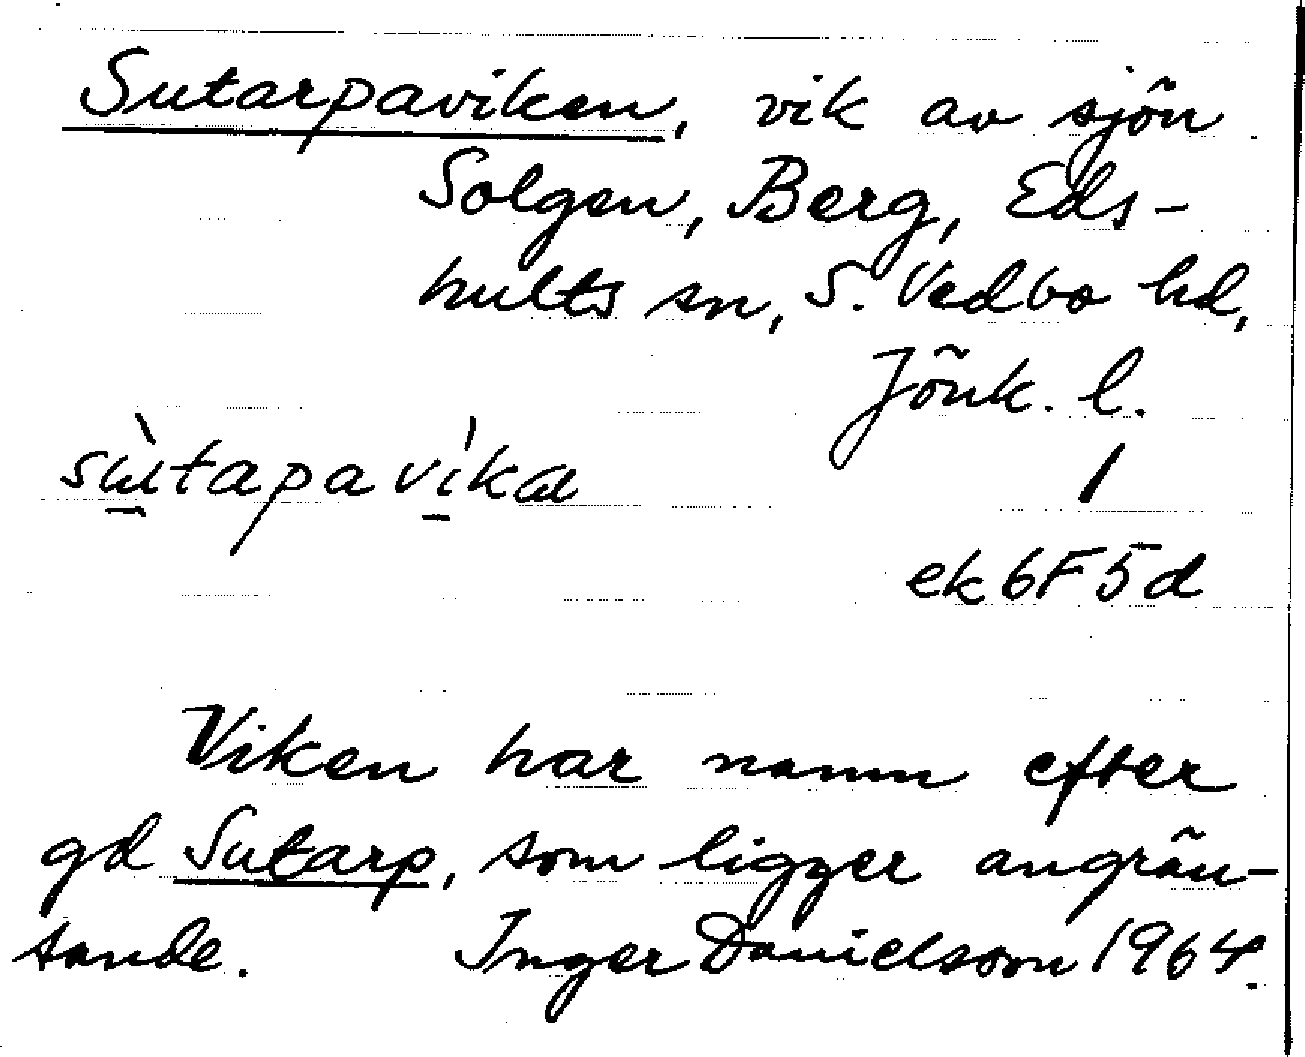 Sutarpaviken, vik av sjön
Solgen, Berg, Eds-
hults sn, S. Vedbo hd,
Jönk. l.
sùtapavíkæ
ek 6F5d
Viken har namn efter
gd Sutarp, som ligger angrän-
sande. Inger Danielsson 1964.